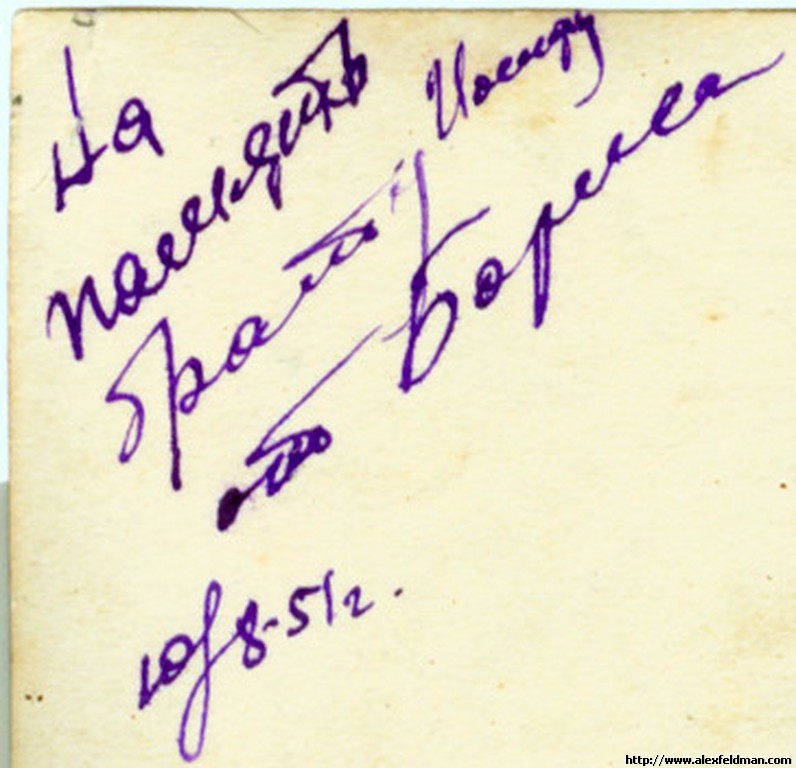 На
память
брату Иосифу
от Бориса
10/8-51г.
http://www.alexfeldman.com